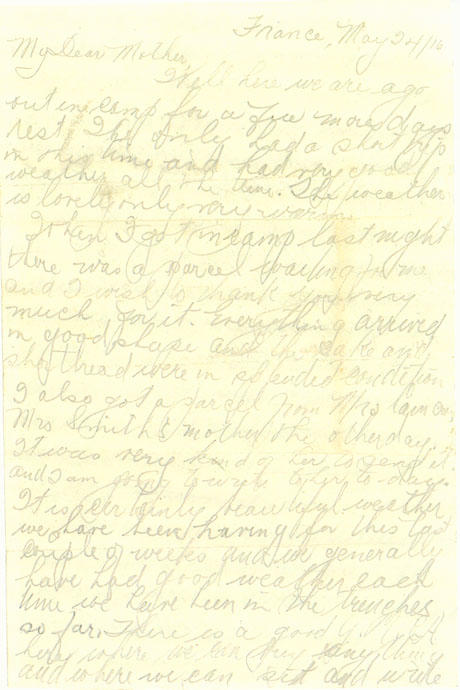 France, May 24/16
My Dear Mother,
Well here we are ago
out in camp for a few more days
rest. I only had a short trip
in this time and had very good
weather all the time. The weather
is lovely only very warm.
When I got in camp last night
there was a parcel waiting for me
and I wish to thank you very
much for it. Everything arrived
in good shape and the cake and
shortbread were in splended condition
I also got a parcel from Mrs
Mrs Smith's mother the other day.
It was very kind of her to send it
and I am going to write to her to-day.
It is certainly beautiful weather
we have been having for this last
couple of weeks and we generally
have had good weather each
time we have been in the trenches
so far. There is a good Y.M.C.A
here where we can buy anything
and where we can sit and write